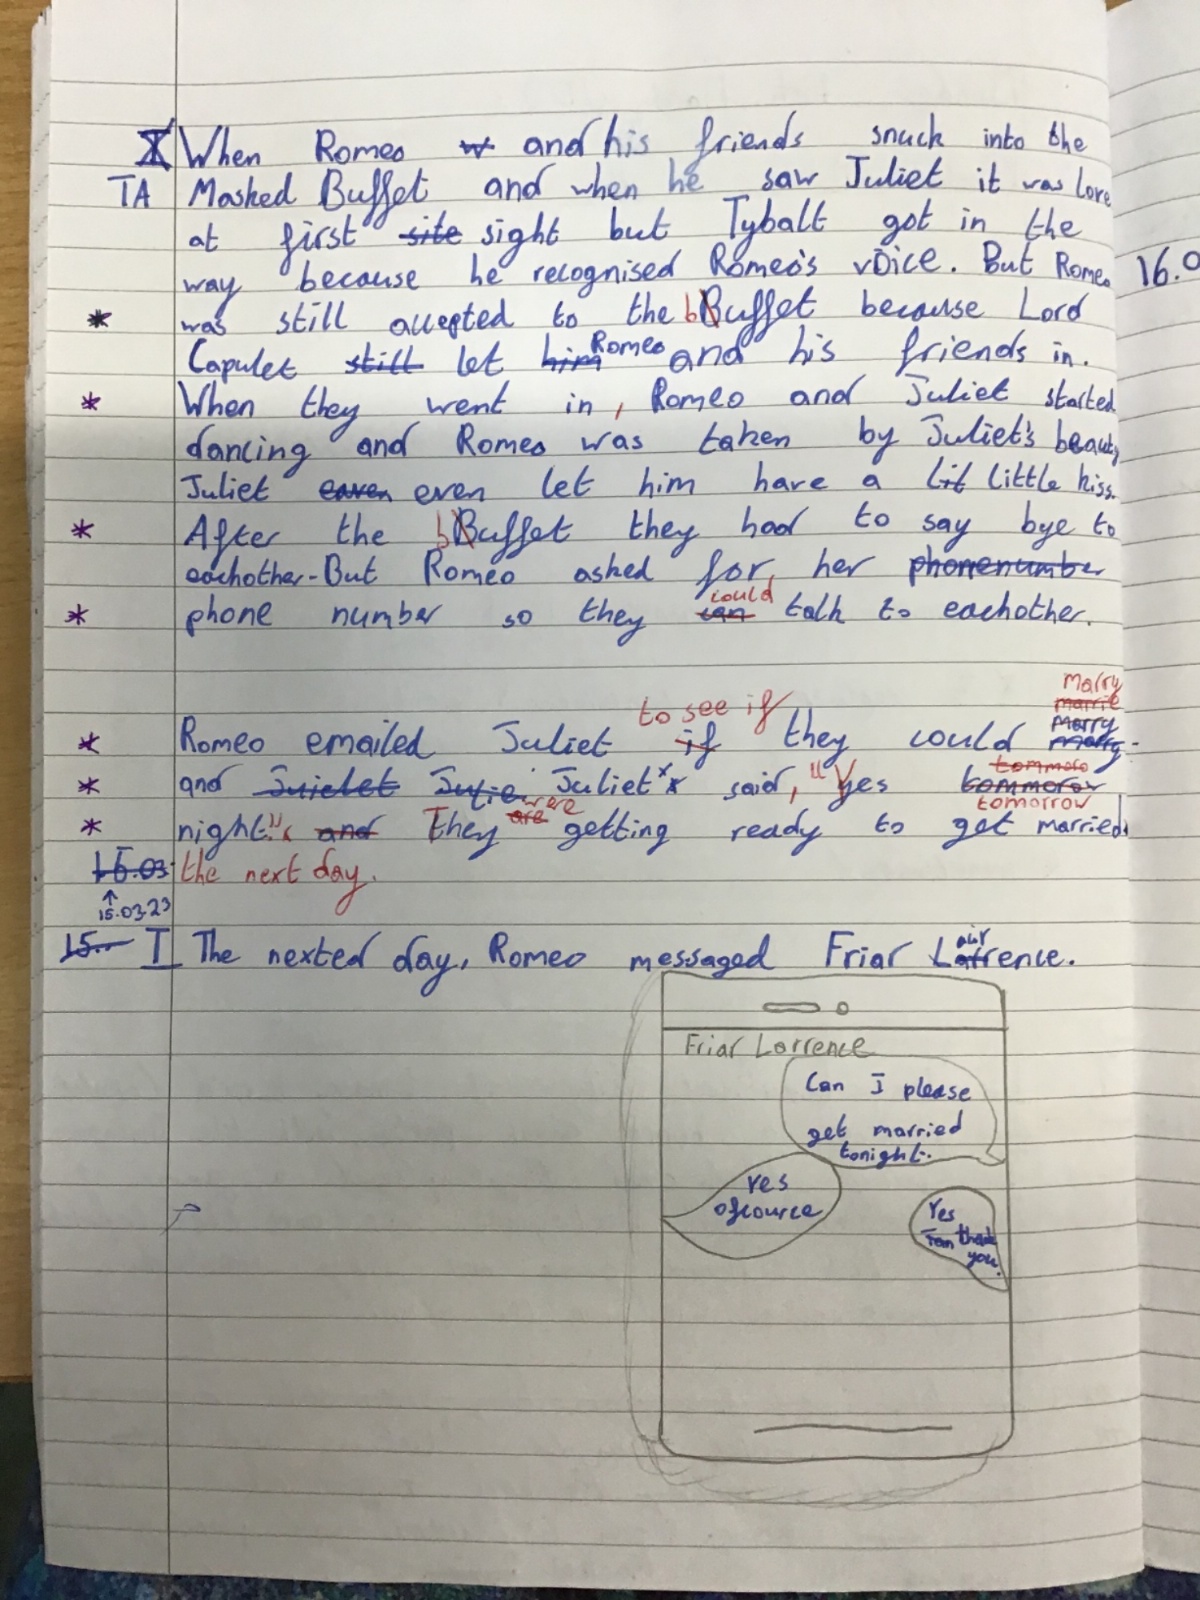 I When Romeo w and his friends snuck into the
TA Masked Buffet and when he saw Juliet it was love
at first site sight but Tybalt got in the
way because he recognised Romeo's voice. But Romeo
16.0
* was still accepted to the bBuffet because Lord
Capulet still let him Romeo and his friends in.
* When they went in, Romeo and Juliet started
dancing and Romeo was taken by Juliet's beauty
Juliet eaven even let him have a lit little kiss.
* After the bBuffet they had to say bye to
eachother. But Romeo asked for her phonenumber
could
* phone number so they can talk to eachother.
marry
to see if marrie
marry
* Romeo emailed Juliet if they could marry.
tommoro
* and Juielet Julie Juliet said, "Yes tommorow
were tomorrow
* night." and They are getting ready to get married
15.03 the next day.
↑
15.03.23
15. I The nexted day, Romeo messaged Friar Lawrence.
Friar Lorrence
Can I please
get married
tonight.
Yes
ofcource
Yes
thank
you.